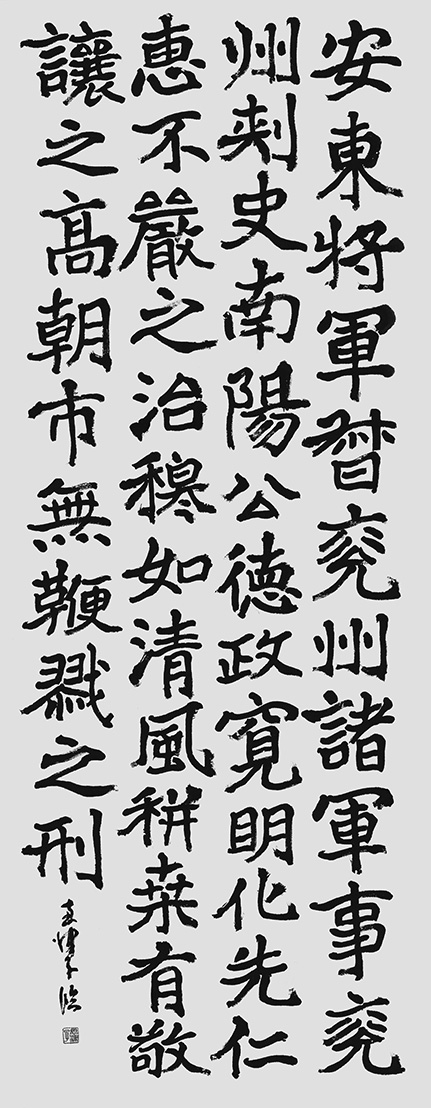 安東将軍督兖州諸軍事兖
州刾史南陽公德政寛明化先仁
惠不嚴之治穆如清風耕桒有敬
讓之髙朝市無鞭戮之刑